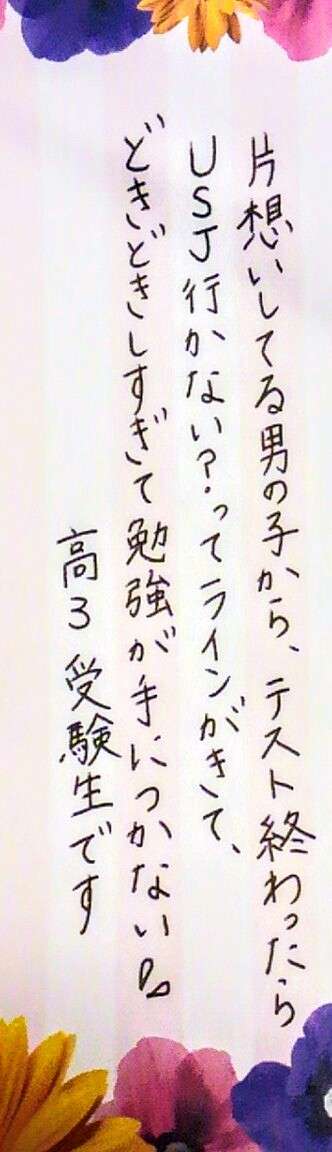 片想いしてる男の子から、テスト終わったら
USJ行かない？ってラインがきて、
どきどきしすぎて勉強が手につかない
高3 受験生です